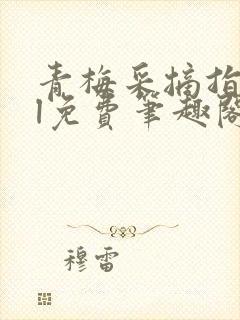 青梅采摘指
l免费笔趣阁
穆雷